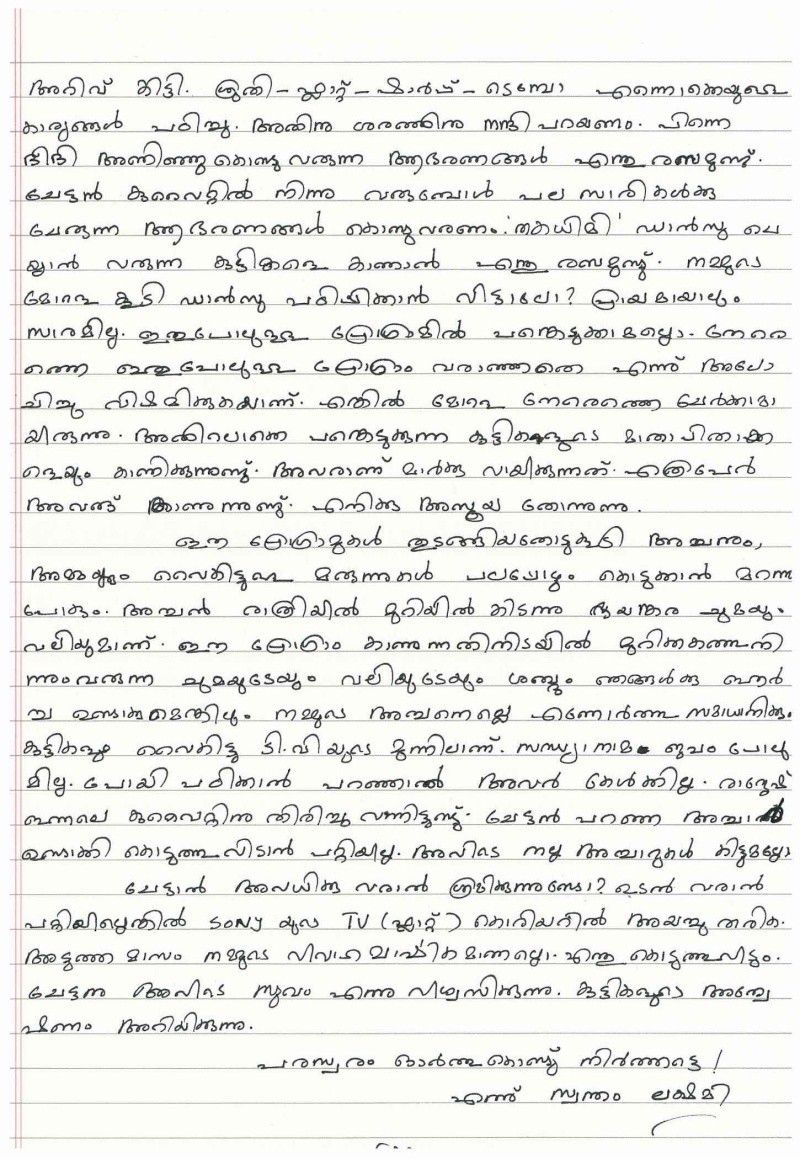 അറിവ് കിട്ടി. ശ്രുതി - ഫ്ലാറ്റ് - ഷാർപ് - ടെമ്പോ എന്നൊക്കെയുള്ള
കാര്യങ്ങൾ പഠിച്ചു. അതിനു ശരത്തിനു നന്ദി പറയണം. പിന്നെ
ദീദി അണിഞ്ഞു കൊണ്ടു വരുന്ന ആഭരണങ്ങൾ എന്തു രസമുണ്ട്.
ചേട്ടൻ കുവൈറ്റിൽ നിന്നു വരുമ്പോൾ പല സാരികൾക്കു
ചേരുന്ന ആഭരണങ്ങൾ കൊണ്ടുവരണം. 'തകധിമി' ഡാൻസു ചെ
യ്യാൻ വരുന്ന കുട്ടികളെ കാണാൻ എന്തു രസമുണ്ട്. നമ്മുടെ
മോളെ കൂടി ഡാൻസു പഠിപ്പിക്കാൻ വിട്ടാലോ? പ്രായമായാലും
സാരമില്ല. ഇതുപോലുള്ള പ്രോഗ്രാമിൽ പങ്കെടുക്കാമല്ലൊ. നേരെ
ത്തെ ഇതുപോലുള്ള പ്രോഗ്രാം വരാഞ്ഞതെ എന്ന് ആലോ
ചിച്ചു വിഷമിക്കുകയാണ്. എങ്കിൽ മോളെ നേരെത്തെ ചേർക്കാമാ
യിരുന്നു. അതിലൊക്കെ പങ്കെടുക്കുന്ന കുട്ടികളുടെ മാതാപിതാക്ക
ളെയും കാണിക്കുന്നുണ്ട്. അവരാണ് മാർക്കു വായിക്കുന്നത്. എത്രപേർ
അവരെ കാണുന്നുണ്ട്. എനിക്കു അസൂയ തോന്നുന്നു.
ഈ പ്രോഗ്രാമുകൾ തുടങ്ങിയതോടുകൂടി അച്ഛനും,
അമ്മയ്ക്കും വൈകിട്ടുള്ള മരുന്നുകൾ പലപ്പോഴും കൊടുക്കാൻ മറന്നു
പോകും. അച്ഛൻ രാത്രിയിൽ മുറിയിൽ കിടന്നു ഭയങ്കര ചുമയും
വലിയുമാണ്. ഈ പ്രോഗ്രാം കാണുന്നതിനിടയിൽ മുറിക്കകത്തുനി
ന്നും വരുന്ന ചുമയുടേയും വലിയുടേയും ശബ്ദം ഞങ്ങൾക്കു ബോർ
ച്ച ഉണ്ടാക്കുമെങ്കിലും നമ്മുടെ അച്ഛനല്ലെ എന്നോർത്തു സമാധാനിക്കും.
കുട്ടികളും വൈകിട്ടു ടി.വിയുടെ മുന്നിലാണ്. സന്ധ്യാനാമ ജപം പോലു
മില്ല. പോയി പഠിക്കാൻ പറഞ്ഞാൽ അവർ കേൾക്കില്ല. രാജേഷ്
ഇന്നലെ കുവൈറ്റിനു തിരിച്ചു വന്നിട്ടുണ്ട്. ചേട്ടൻ പറഞ്ഞ അച്ചാർ
ഉണ്ടാക്കി കൊടുത്തുവിടാൻ പറ്റിയില്ല. അവിടെ നല്ല അച്ചാറുകൾ കിട്ടുമല്ലോ
ചേട്ടൻ അവധിക്കു വരാൻ ശ്രമിക്കുന്നുണ്ടോ? ഉടൻ വരാൻ
പറ്റിയില്ലെങ്കിൽ SONY യുടെ TV (ഫ്ലാറ്റ്) കൊറിയറിൽ അയച്ചു തരിക.
അടുത്ത മാസം നമ്മുടെ വിവാഹ വാർഷികമാണല്ലൊ. എന്തു കൊടുത്തുവിടും.
ചേട്ടനു അവിടെ സുഖം എന്നു വിശ്വസിക്കുന്നു. കുട്ടികളുടെ അന്വേ
ഷണം അറിയിക്കുന്നു.
പരസ്പരം ഓർത്തുകൊണ്ടു് നിർത്തട്ടെ!
എന്ന് സ്വന്തം ലക്ഷ്മി